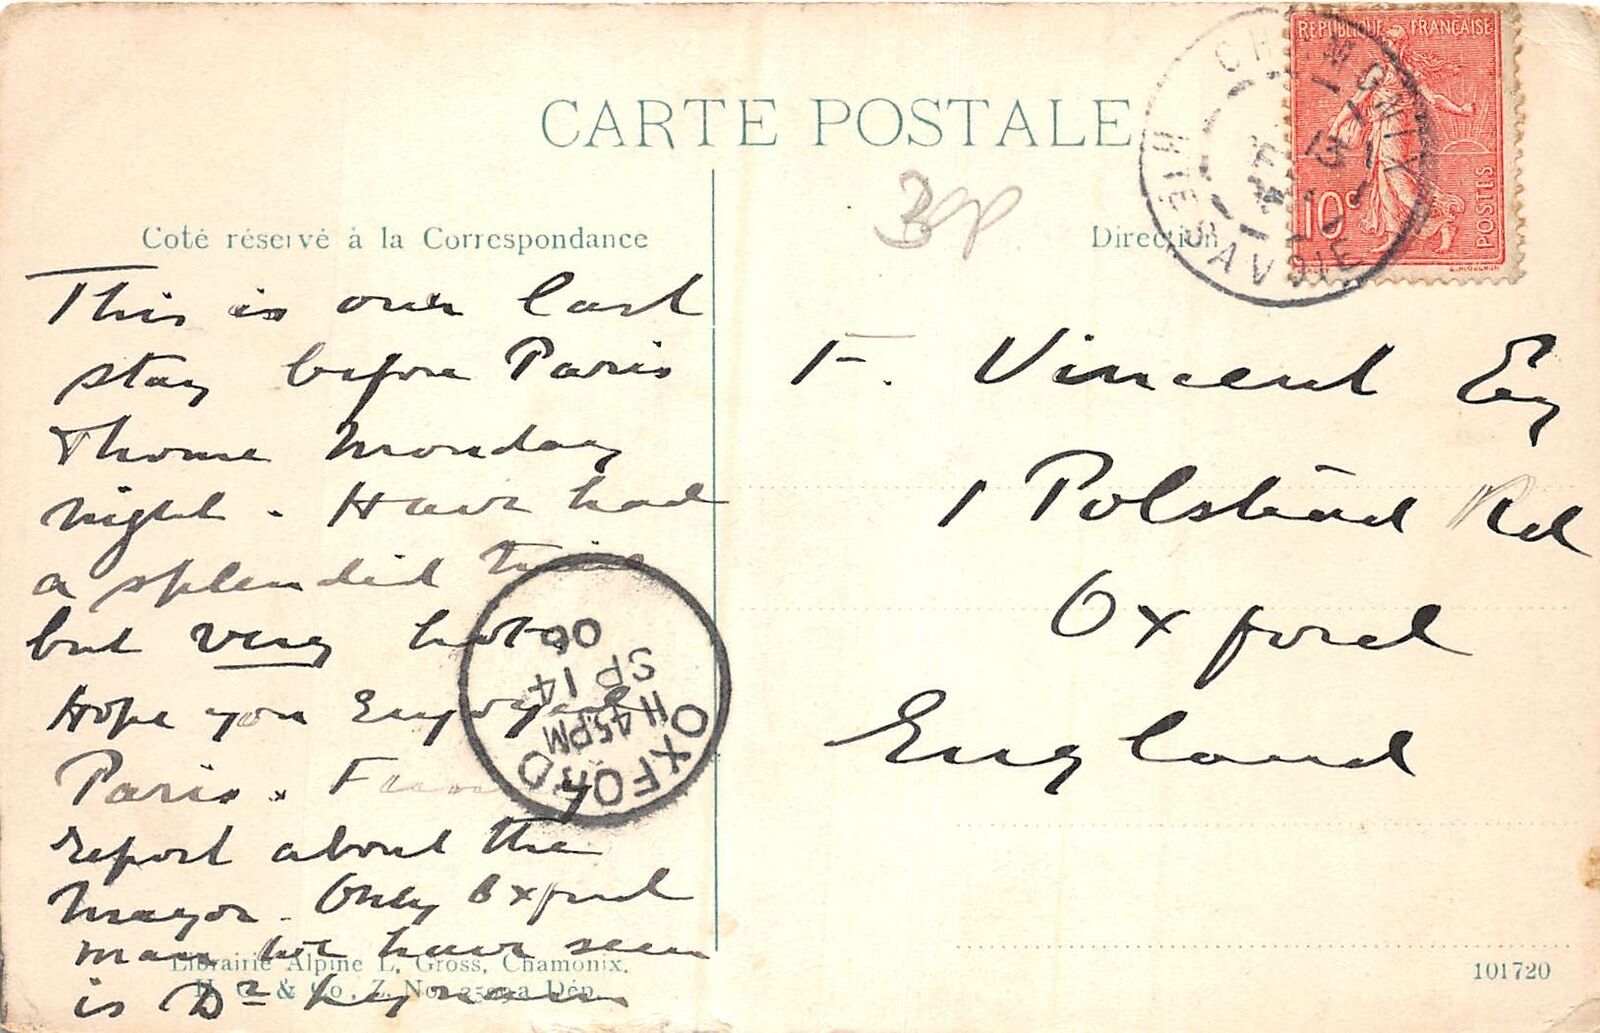 CARTE POSTALE
REPUBLIQUE FRANÇAISE
10c
POSTES
CHAMONIX
Hte SAVOIE
Coté réservé à la Correspondance
Direction
This is our last
stay before Paris
& home Monday
night. Have had
a splendid time
but very hot.
Hope you enjoyed
Paris. Funny
report about the
Mayor. Only Oxford
man we have seen
is Dr
F. Vincent Esq
1 Polstead Rd
Oxford
England
OXFORD
11.45PM
SP 14
06
Librairie Alpine L. Gross, Chamonix.
& Co, Z. No. a Dép.
101720